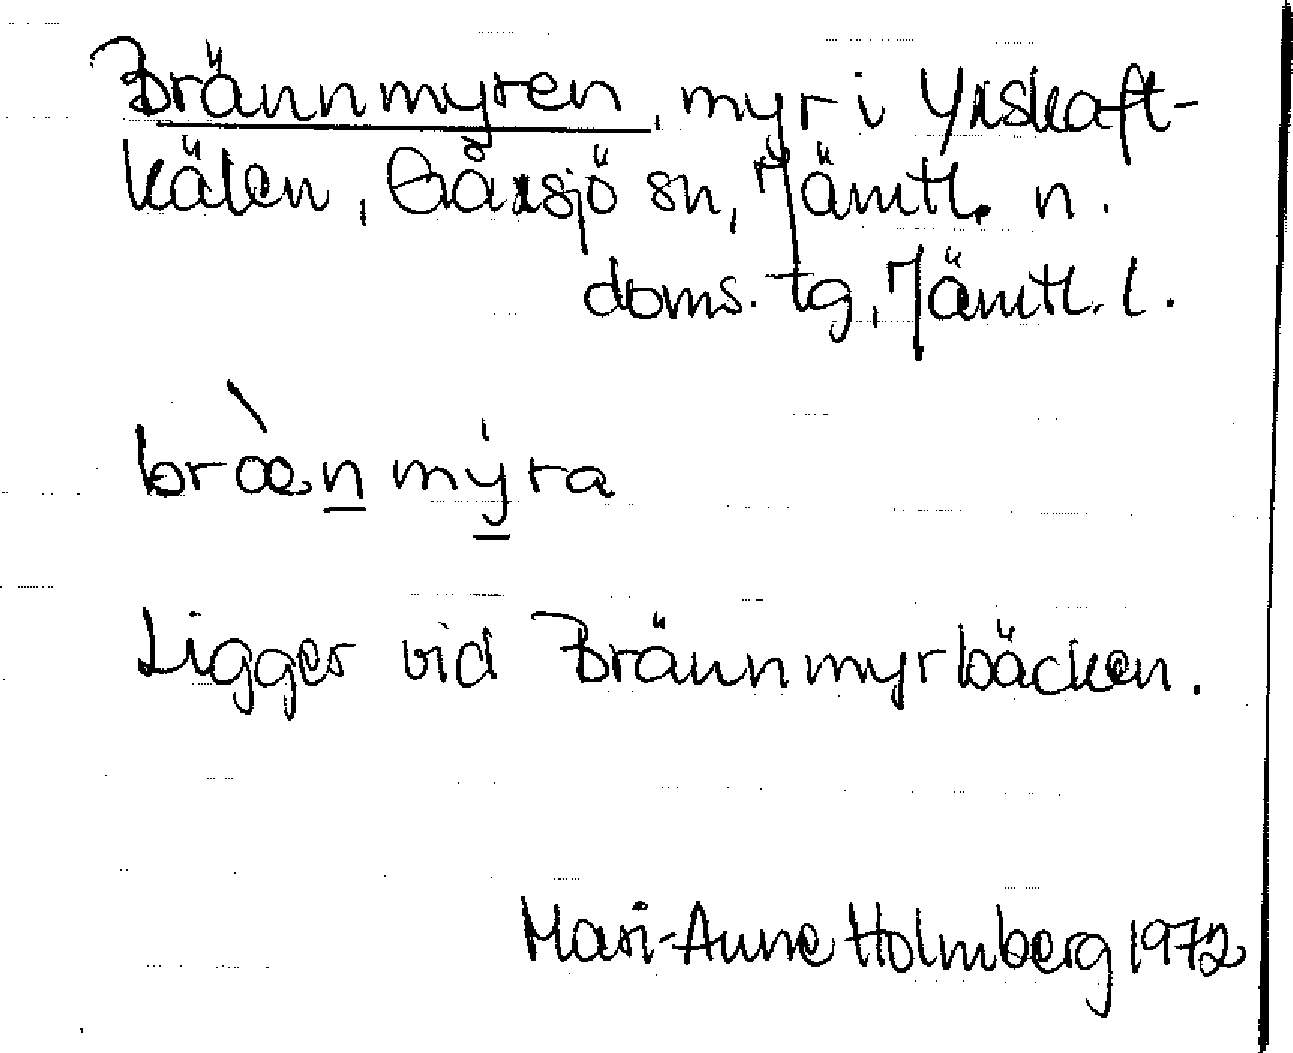 Brännmyren, myr i Yxskaft-
kälen, Gåxsjö sn, Jämtl. n.
doms. tg, Jämtl. l.
bræ̀n mýra
Ligger vid Brännmyrbäcken.
Mari-Anne Holmberg 1972